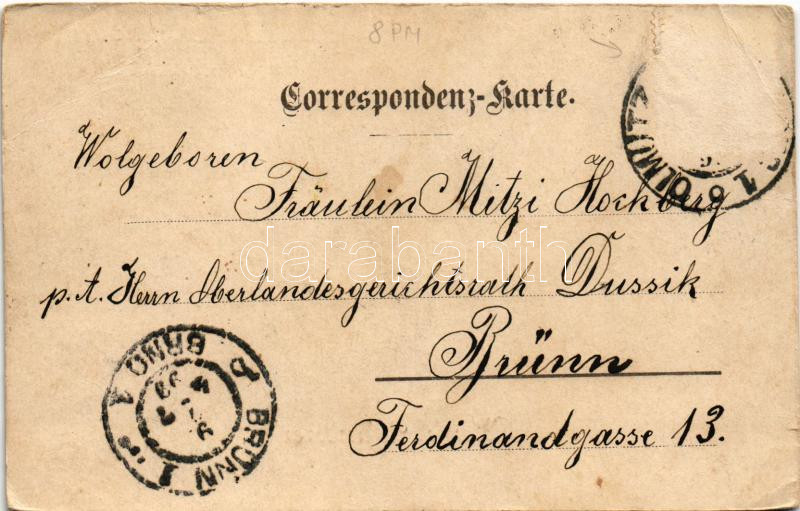 8 PM
Correspondenz-Karte.
Wolgeboren
Fräulein Mitzi Hochberg
p. A. Herrn Oberlandesgerichtsrath Dussik
Brünn
Ferdinandgasse 13.
OLMÜTZ 1
BRÜNN 1
BRNO 1
99
darabanth